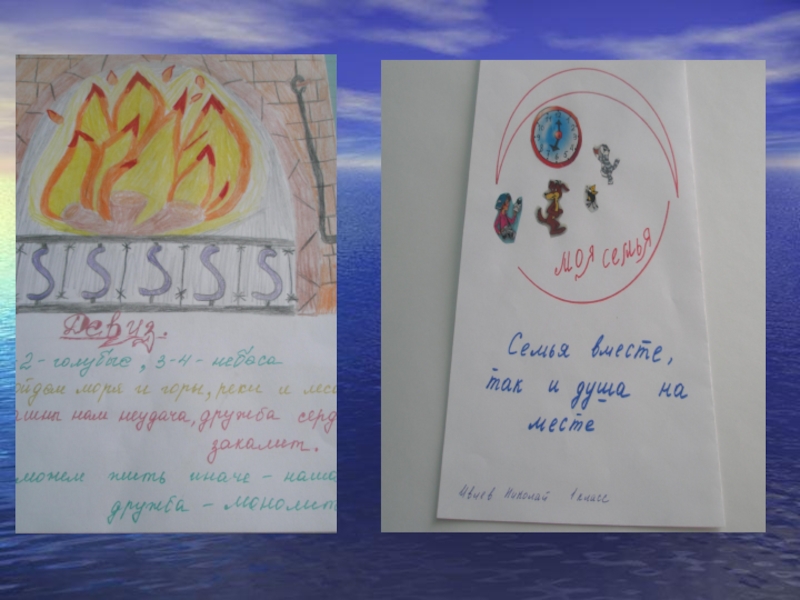 Девиз.
2-голубые, 3-4-небеса
ойдем моря и горы, реки и леса
ашны нам неудача, дружба серд
закалит.
можем жить иначе - наша
дружба - монолит
моя семья
Семья вместе,
так и душа на
месте
Николай 1 класс